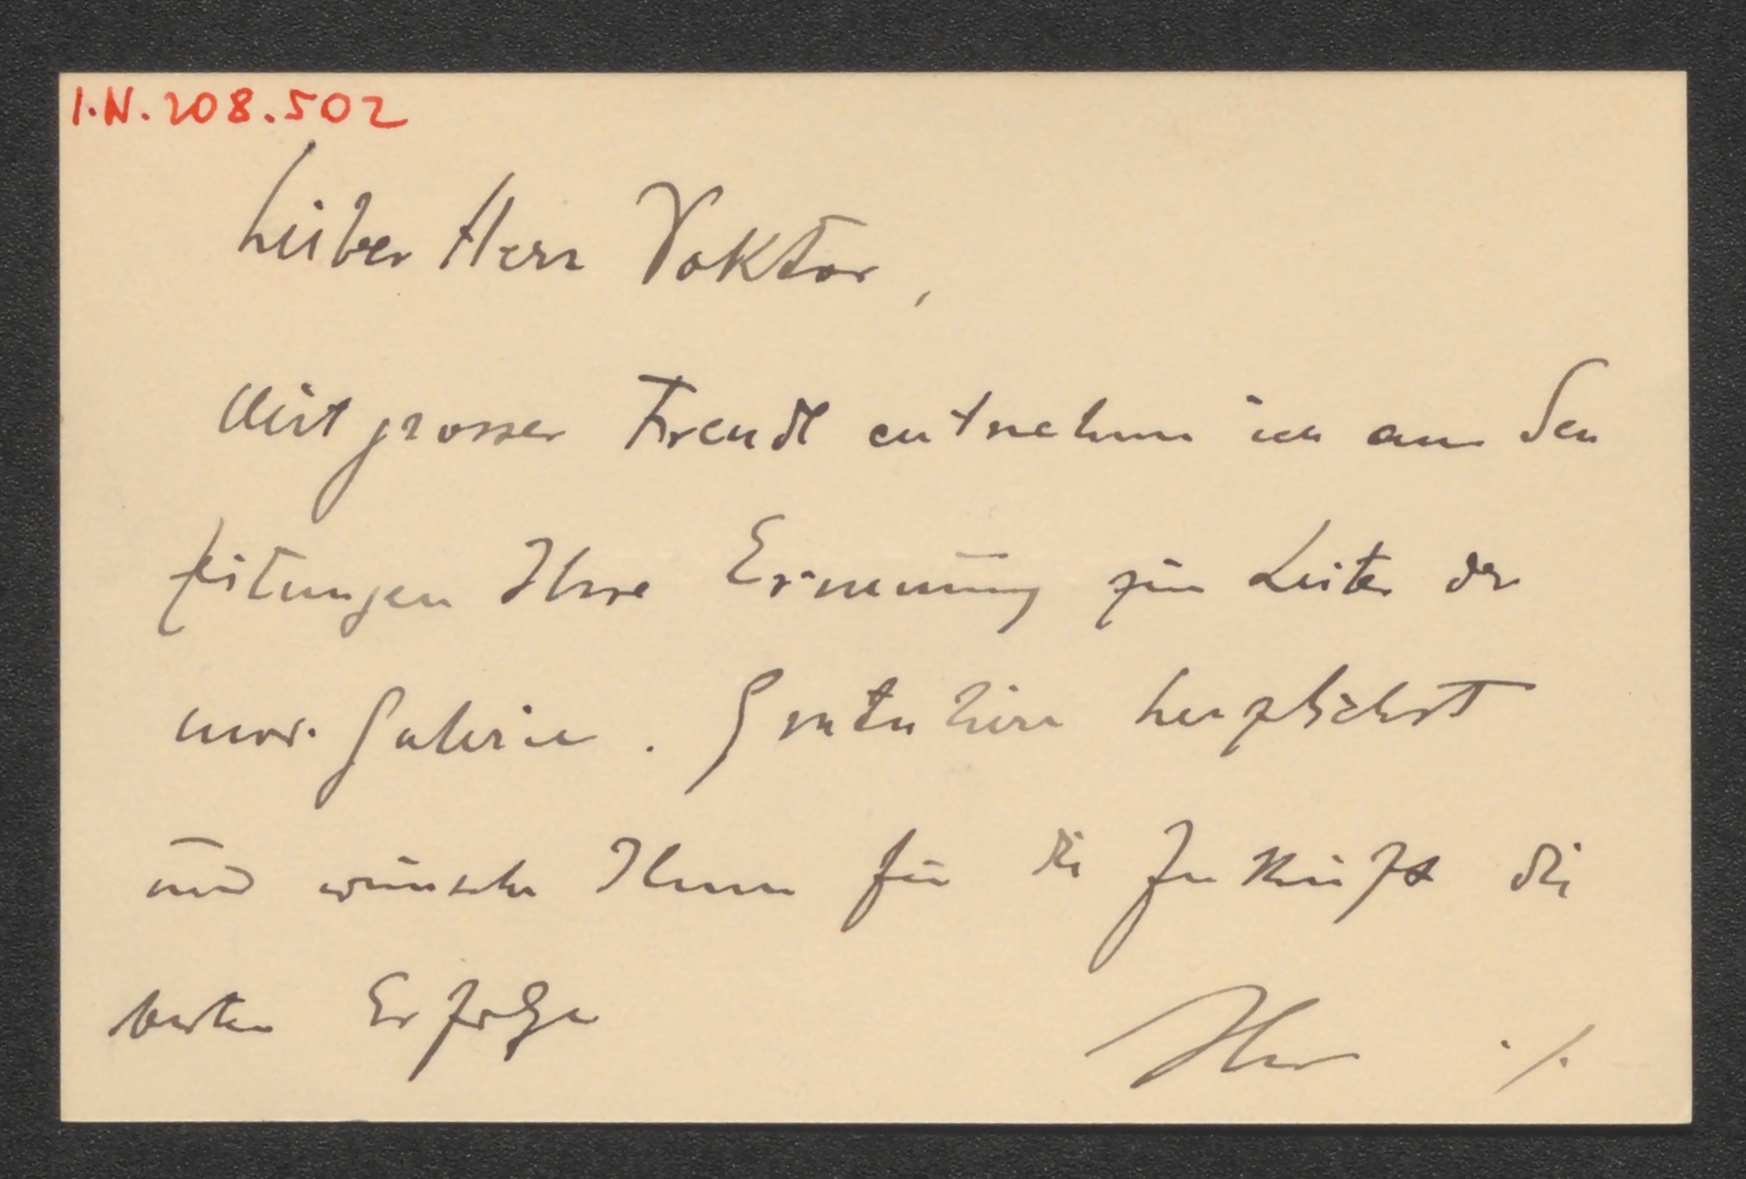 I.N. 208.502
Lieber Herr Doktor,
Mit grosser Freude entnehme ich aus den
Zeitungen Ihre Ernennung zum Leiter der
mod. Galerie. Gratuliere herzlichst
und wünsche Ihnen für die Zukunft die
besten Erfolge
Ihr ./.